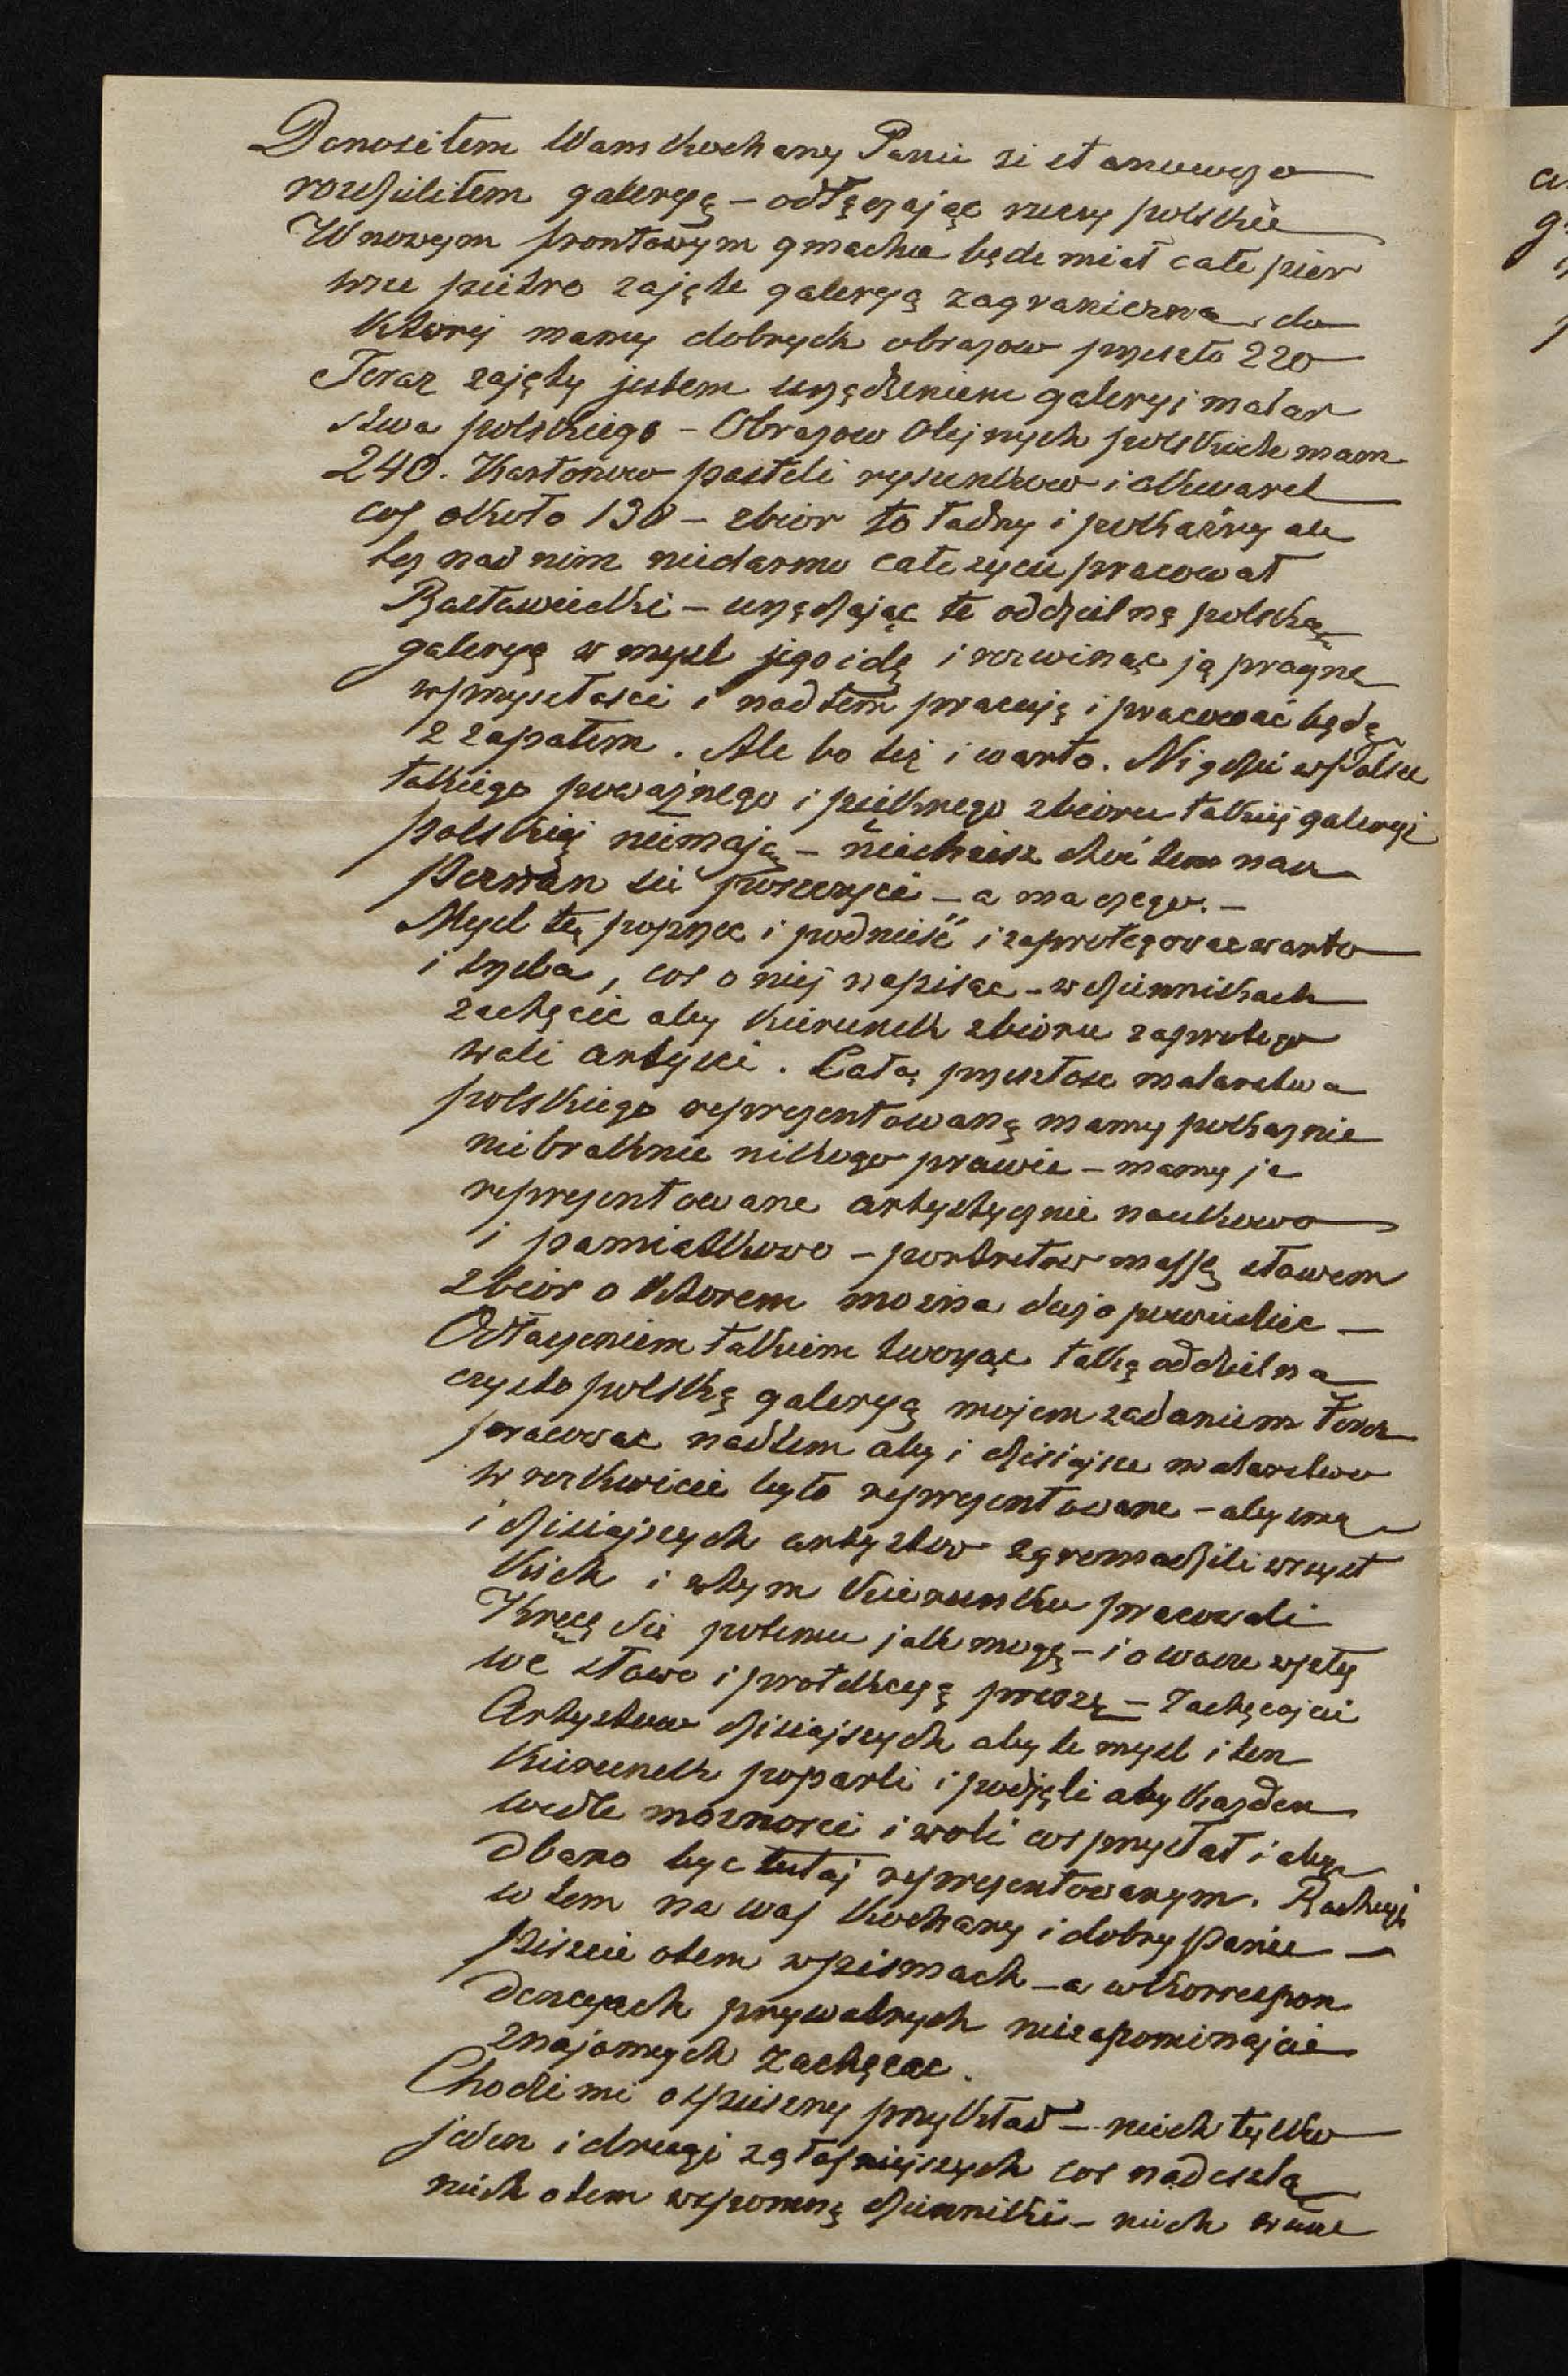 Donosiłem Wam Kochany Panie żi stanowczo
rozdzieliłem galeryę – odłączając rzeczy polskie
W nowym frontowym gmachu będe miał całe pier
wsze piętro zajęte galeryą zagraniczna, do
Ktorej mamy dobrych obrazow przeszło 220
Teraz zajęty jestem urządzeniem galeryi malar
stwa polskiego – Obrazow Olejnych polskich mam
240. Kartonow pasteli rysunkow i akwarel
coś około 130 – zbior to ładny i pokaźny ale
tez nad nim niedarmo całe zycie pracował
Rastawiecki – urządzając te oddzielną polską
galeryą w mysl jego idę i rozwinąc ją pragnę
w przyszłosci i nad tem pracuję i pracować będę
z zapałem. Ale bo też i warto. Nigdzie w Polsce
takiego poważnego i pięknego zbioru takiej galeryi
polskiej niemają – niechżesz choć tem nasz
Poznan sie poszczyci – a ma czego. –
Mysl tę poprzec i podnieść i zaprotegowac warto
i trzeba, cos o niej napisac – w dziennikach
zachęcic aby kierunek zbioru zaprotego
wali artysci. Całą przeszłosc malarstwa
polskiego reprezentowaną mamy pokaznie
niebraknie nikogo prawie – mamy je
reprezentowane artystycznie naukowo
i pamiatkowo – portretow massę słowem
zbior o ktorem mozna duzo powiedziec –
Odłaczeniem takiem tworząc taką oddzielna
czysto polską galeryą mojem zadaniem teraz
pracowac nadtem aby i dzisiajsze malarstwo
w rozkwicie było reprezentowane – abysmy
i dzisiajszych artystow zgromadzili wszyst
kich i w tym kierunku pracowali
Kręcę sie potemu jak mogę – i o wasze wpły
we słowo i protekcyą proszę – Zachęcajcie
Artystow dzisiajszych aby te mysl i ten
kierunek poparli i podjęli aby kazden
wedle moznosci i woli cos przysłał i aby
dbano byc tutaj reprezentowanym. Rachuję
w tem na was Kochany i dobry Panie –
Piszcie otem w pismach – a w korrespon
dencyach prywatnych niezapominajcie
znajomych zachęcac.
Chodzi mi o spieszny przykład – niech tylko
jeden i drugi z głosniejszych cos nadeszla
niech o tem wspomną dzienniki – niech wasze